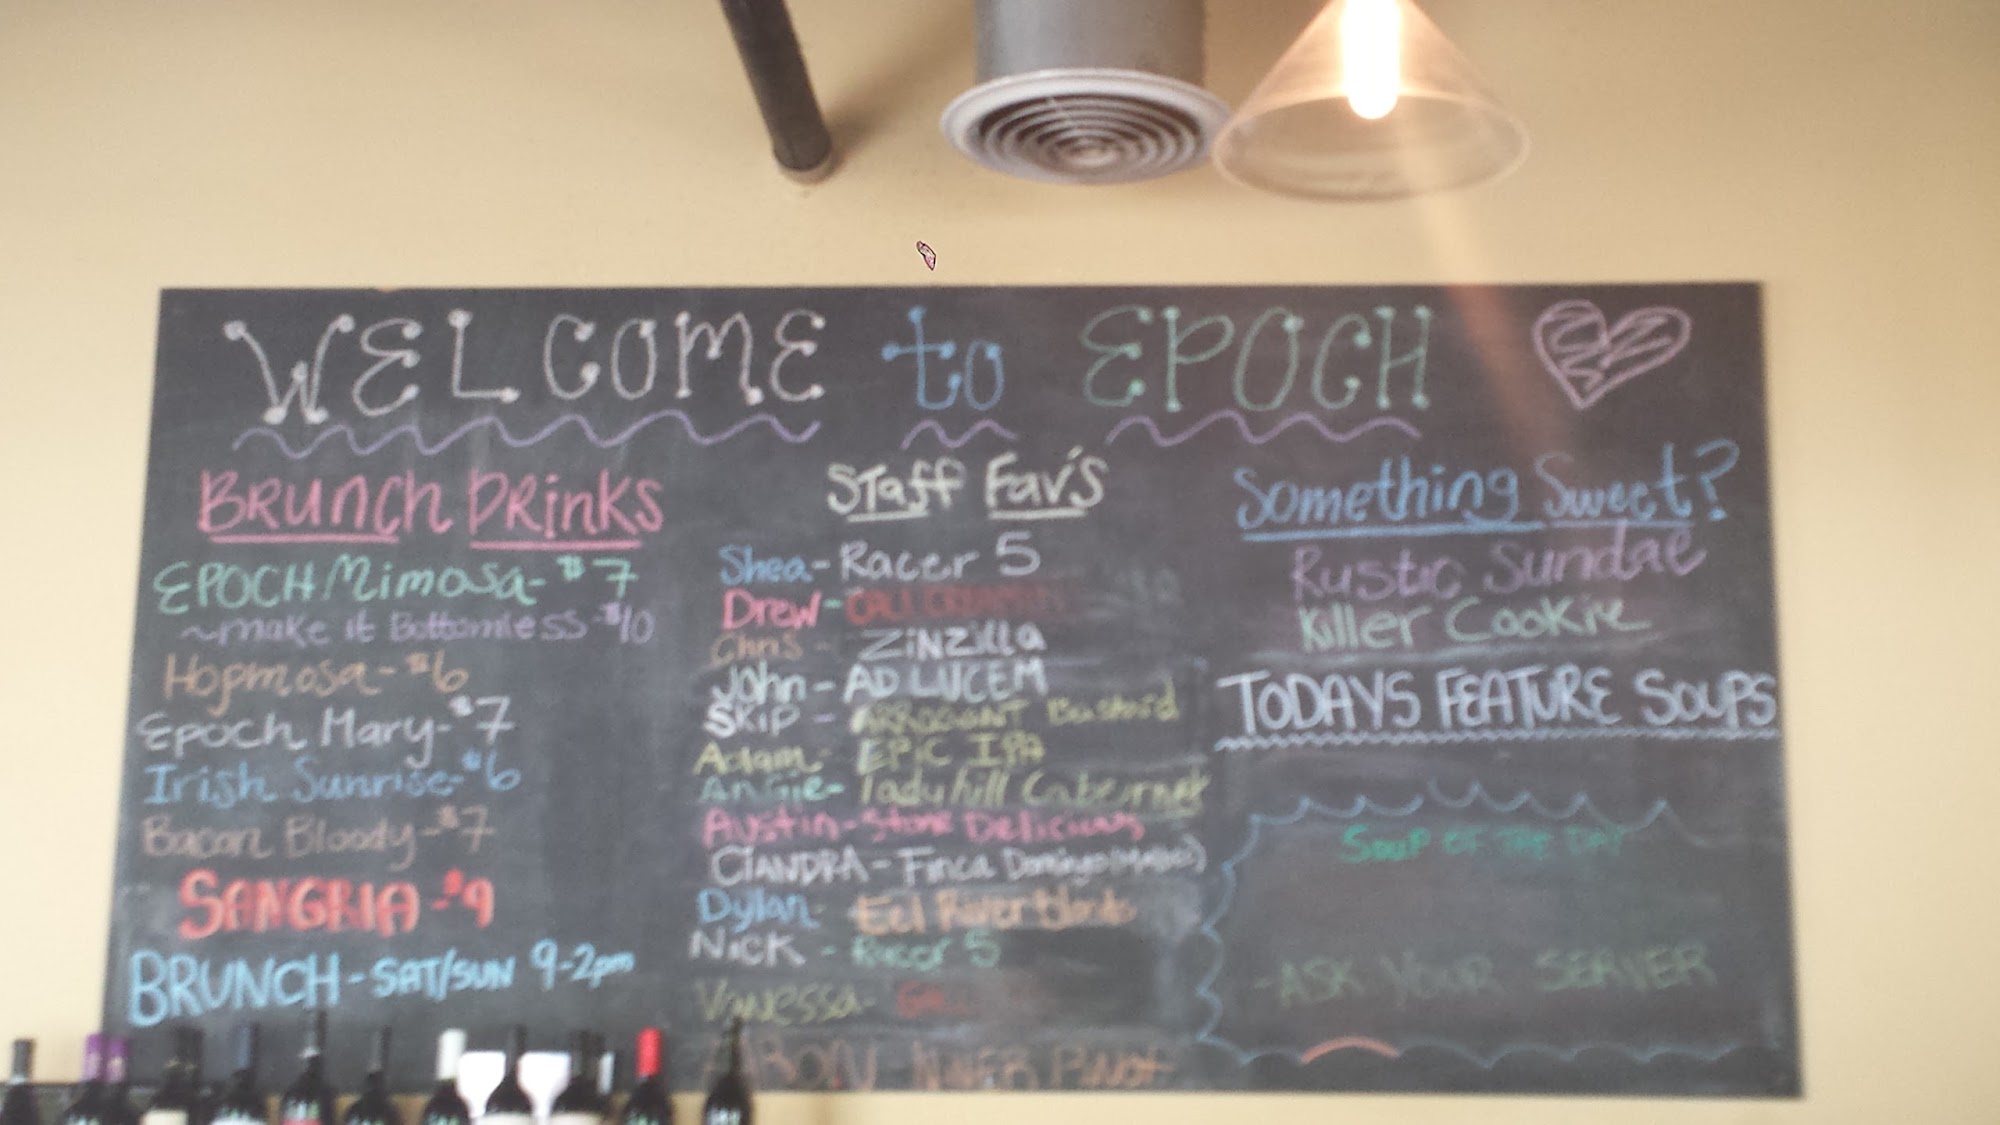 WELCOME to EPOCH
Brunch Drinks
EPOCH Mimosa - $7
~make it Bottomless - $10
Hopmosa - $6
Epoch Mary - $7
Irish Sunrise - $6
Bacon Bloody - $7
SANGRIA - $9
BRUNCH - SAT/SUN 9-2pm
Staff Fav's
Shea - Racer 5
Drew -
Chris - ZiNZiLLA
John - AD LUCEM
Skip - ARROGANT Bastard
Adam - EPIC IPA
Angie - Ladyhill Cabernet
Austin - Stone Delicious
CIANDRA - Finca Domingo
Dylan - Eel River
Nick - Racer 5
Vanessa -
Something Sweet?
Rustic Sundae
Killer Cookie
TODAYS FEATURE SOUPS
SOUP OF THE DAY
- ASK YOUR SERVER